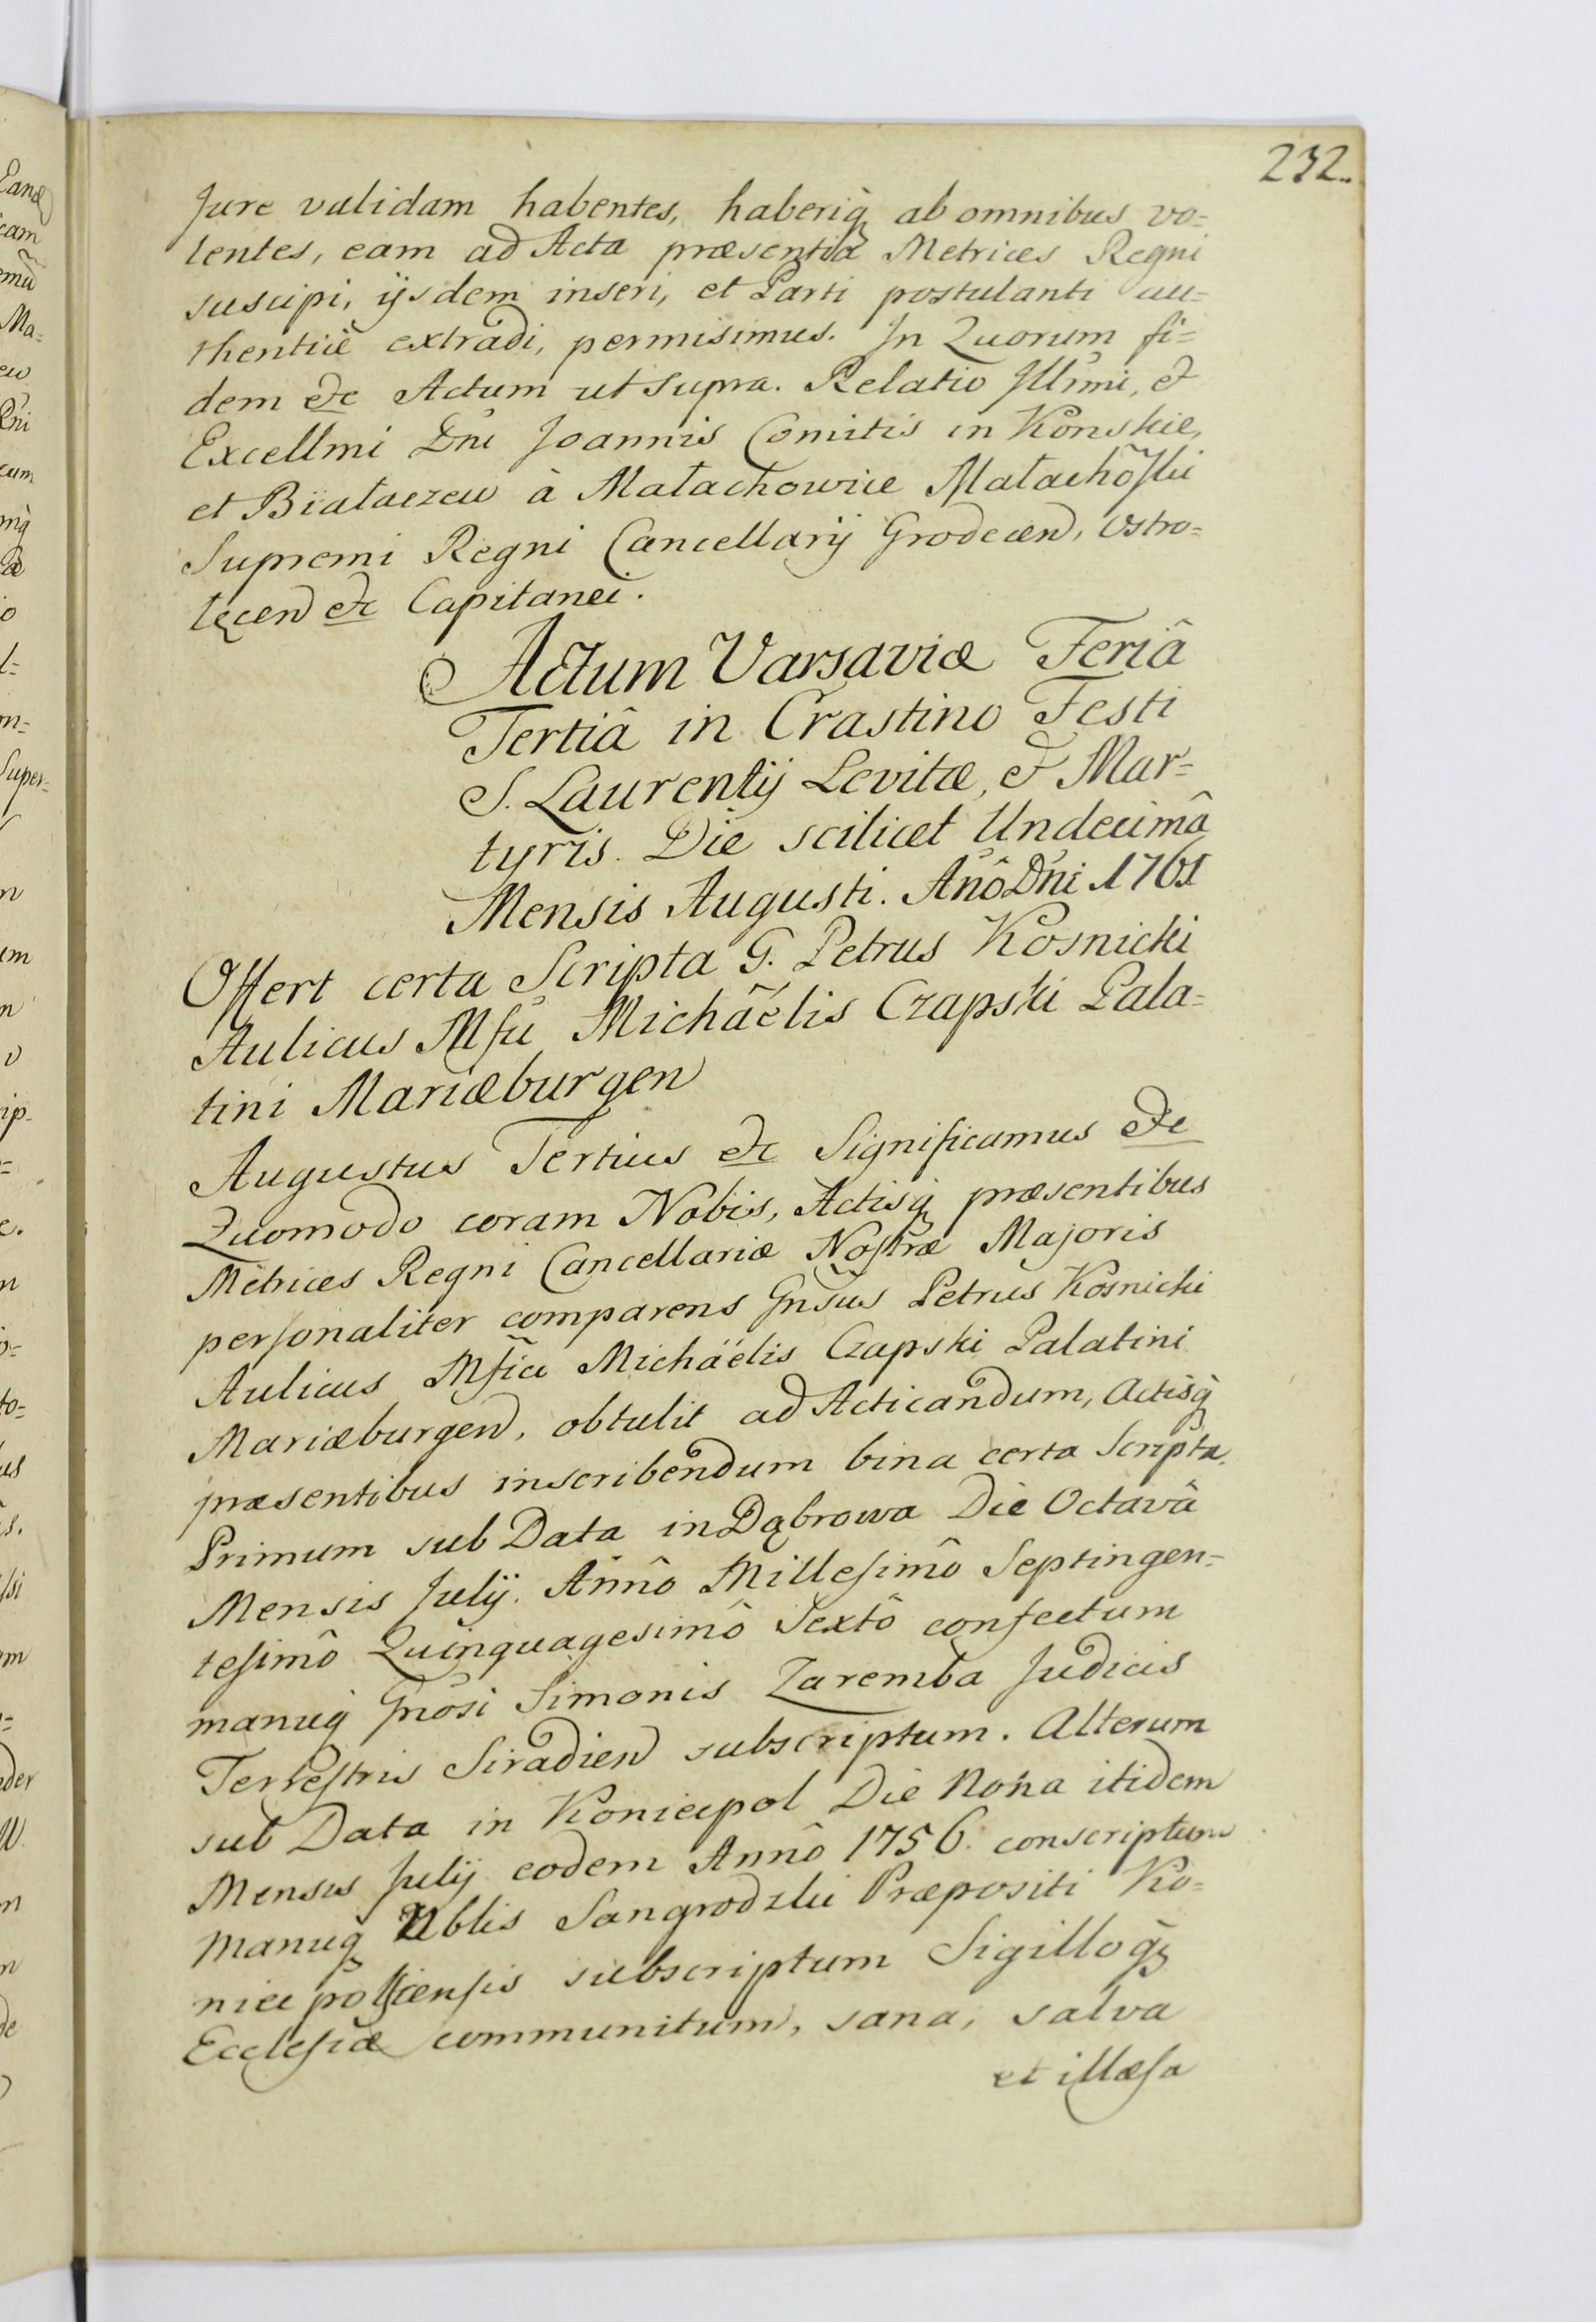 232.
Jure validam habentes, haberiq̀ ab omnibus vo=
lentes, eam ad Acta præsentia Metrices Regni
suscipi, ijsdem inseri, et Parti postulanti au=
thenticè extradi, permisimus. In Quorum fi=
dem etc Actum ut supra. Relatio Illmi, et
Excellmi Dni Joannis Comitis in Konskie,
et Białaczew à Małachowice Małachõski
Supremi Regni Cancellarij Grodecen, Ostro=
łęcen etc Capitanei.
Actum Varsaviæ Feriâ
Tertiâ in Crastino Festi
S. Laurentij Levitæ, et Mar=
tyris. Die scilicet Undecimâ
Mensis Augusti. Anô Dni 1761
Offert certa Scripta G. Petrus Kosnicki
Aulicus Mfci Michaélis Czapski Pala=
tini Mariæburgen
Augustus Tertius etc Significamus etc
Quomodo coram Nobis, Actisq̀ præsentibus
Metrices Regni Cancellariæ Nostræ Majoris
personaliter comparens Gnsus Petrus Kosnicki
Aulicus Mfici Michäélis Czapski Palatini
Mariæburgen, obtulit ad Acticandum, Actisq̀
præsentibus inscribendum bina certa Scripta.
Primum sub Data in Dąbrowa Die Octavâ
Mensis Julij. Annô Millesimô Septingen=
tesimô Quinquagesimô Sextô confectum
manuq̀ Gnosi Simonis Zaremba Judicis
Terrestris Siradien subscriptum. Alterum
sub Data in Koniecpol Die Nona itidem
Mensis Julij eodem Annô 1756. conscriptum
manuq̀ Nblis Sangrodzki Præpositi Ko=
niecpolsciensis subscriptum Sigilloq̀
Ecclesiæ communitum, sana, salva
et illæsa